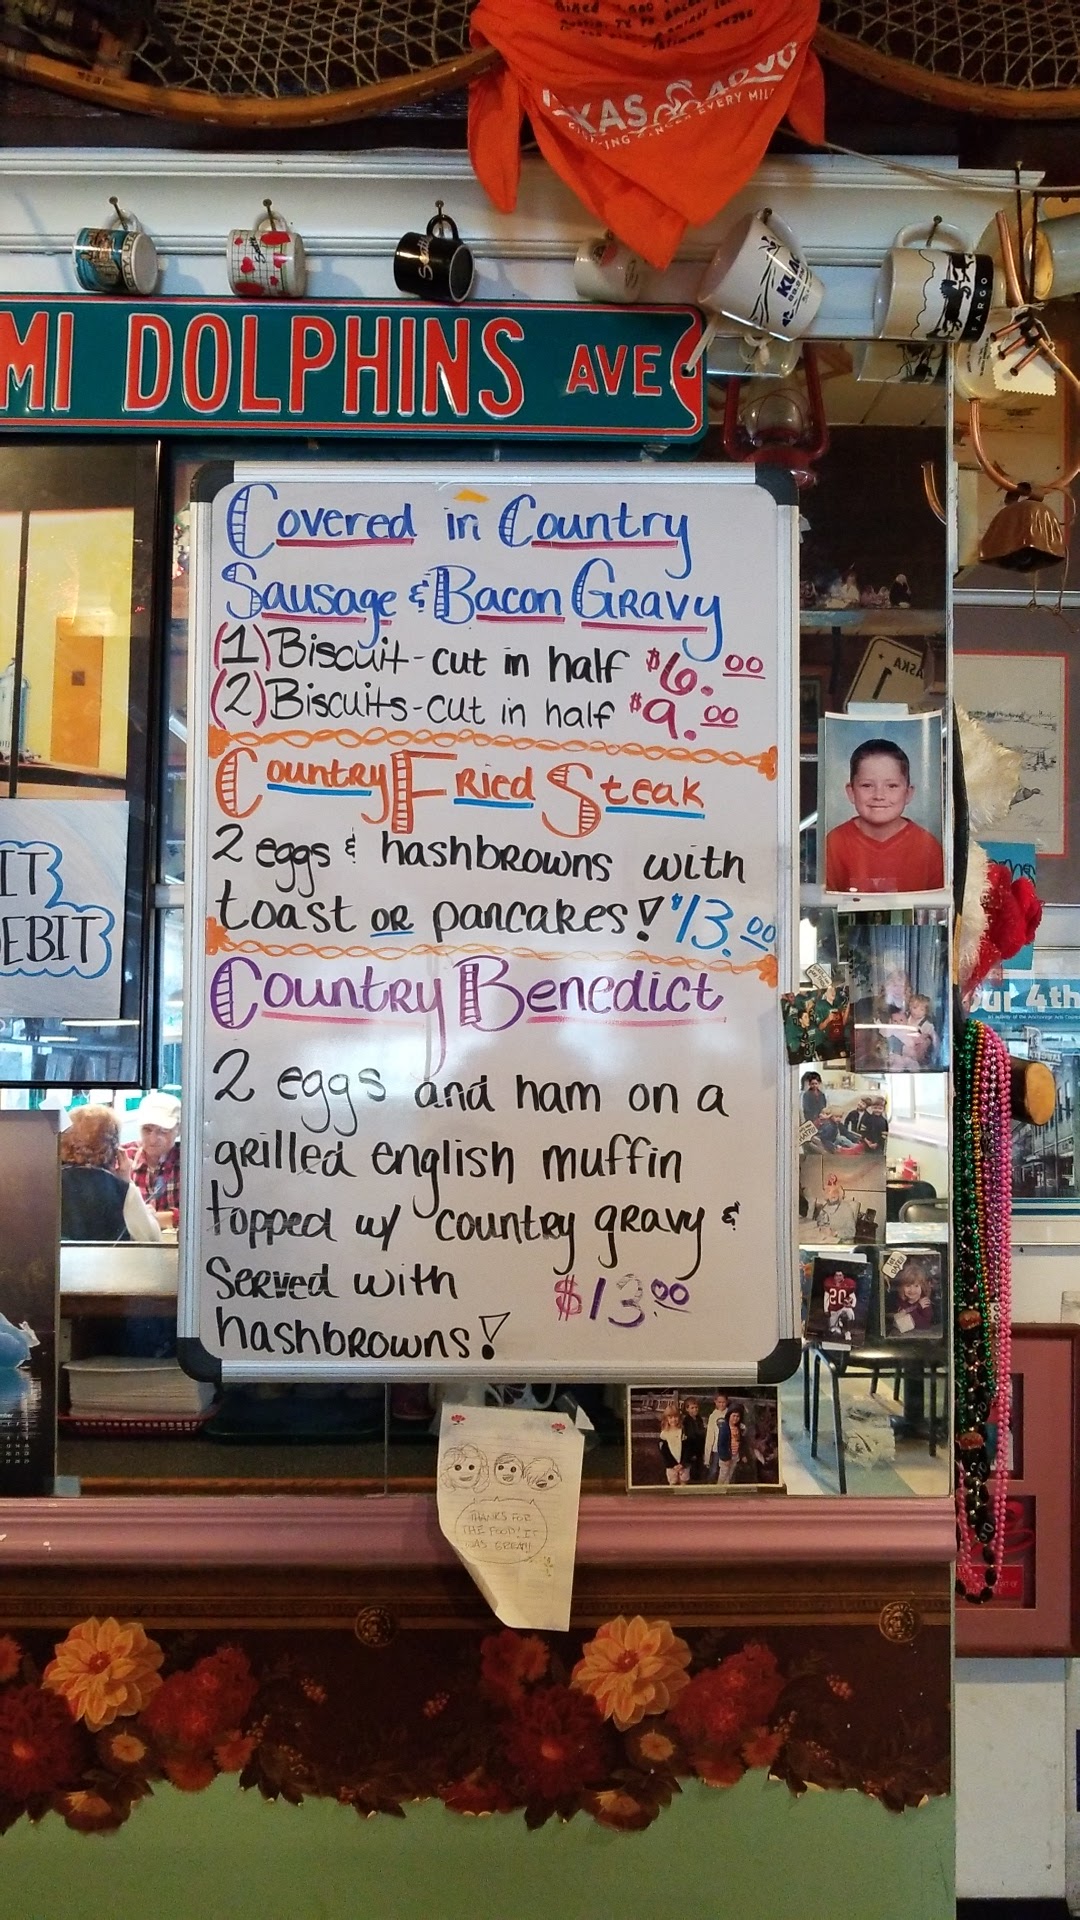 KAS
EVERY MILE
FARGO
MI DOLPHINS AVE
Covered in Country
Sausage & Bacon Gravy
(1) Biscuit-cut in half $6.00
(2) Biscuits-cut in half $9.00
Country Fried Steak
2 eggs & hashbrowns with
toast or pancakes! $13.00
Country Benedict
2 eggs and ham on a
grilled english muffin
topped w/ country gravy &
served with $13.00
hashbrowns!
IT
EBIT
our 4th
THANKS FOR
THE FOOD! IT
WAS GREAT!!